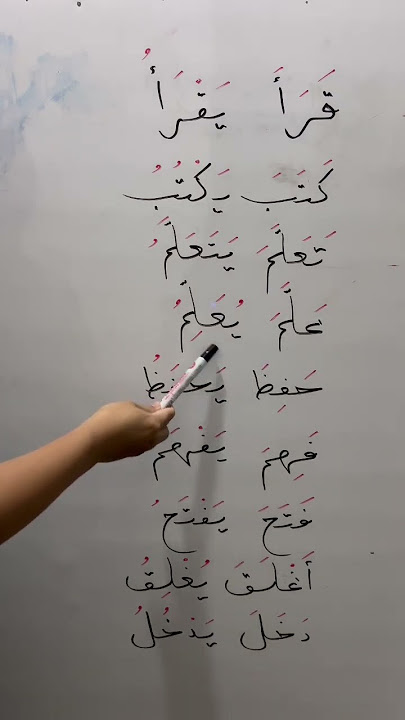 قَرَأَ يَقْرَأُ
كَتَبَ يَكْتُبُ
تَعَلَّمَ يَتَعَلَّمُ
عَلَّمَ يُعَلِّمُ
حَفِظَ يَحْفَظُ
فَهِمَ يَفْهَمُ
فَتَحَ يَفْتَحُ
أَغْلَقَ يُغْلِقُ
دَخَلَ يَدْخُلُ